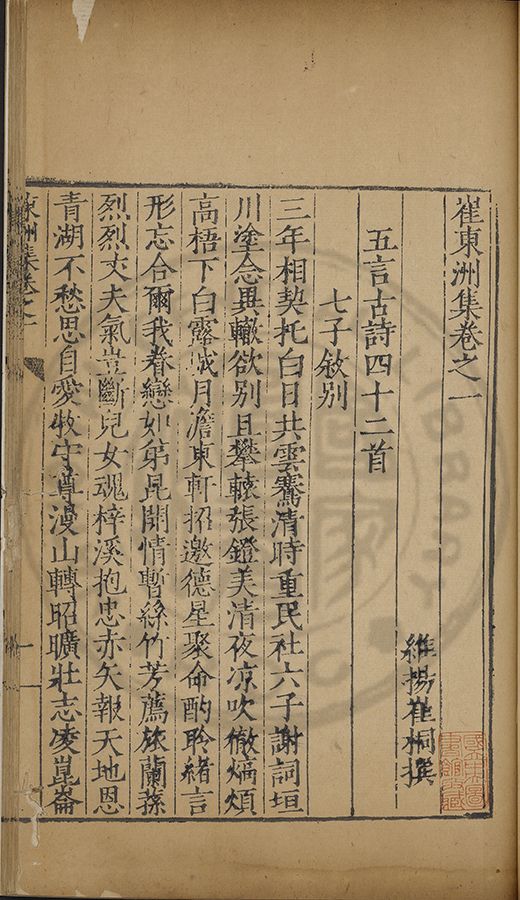 崔東洲集卷之一
維揚崔桐撰
五言古詩四十二首
七子敘别
三年相契托白日共雲騫清時重民社六子謝詞垣
川塗念異轍欲别且攀轅張鐙美清夜凉吹徹煩
高梧下白露城月澹東軒招邀德星聚命酌聆緒言
形忘合爾我眷戀如弟昆閒情暫絲竹芳薦旅蘭蓀
烈烈丈夫氣豈斷兒女魂梓溪抱忠赤矢報天地恩
青湖不愁思自愛牧守尊漫山轉昭曠壯志凌崑崙
東洲集卷之一
國立中央圖書館收藏